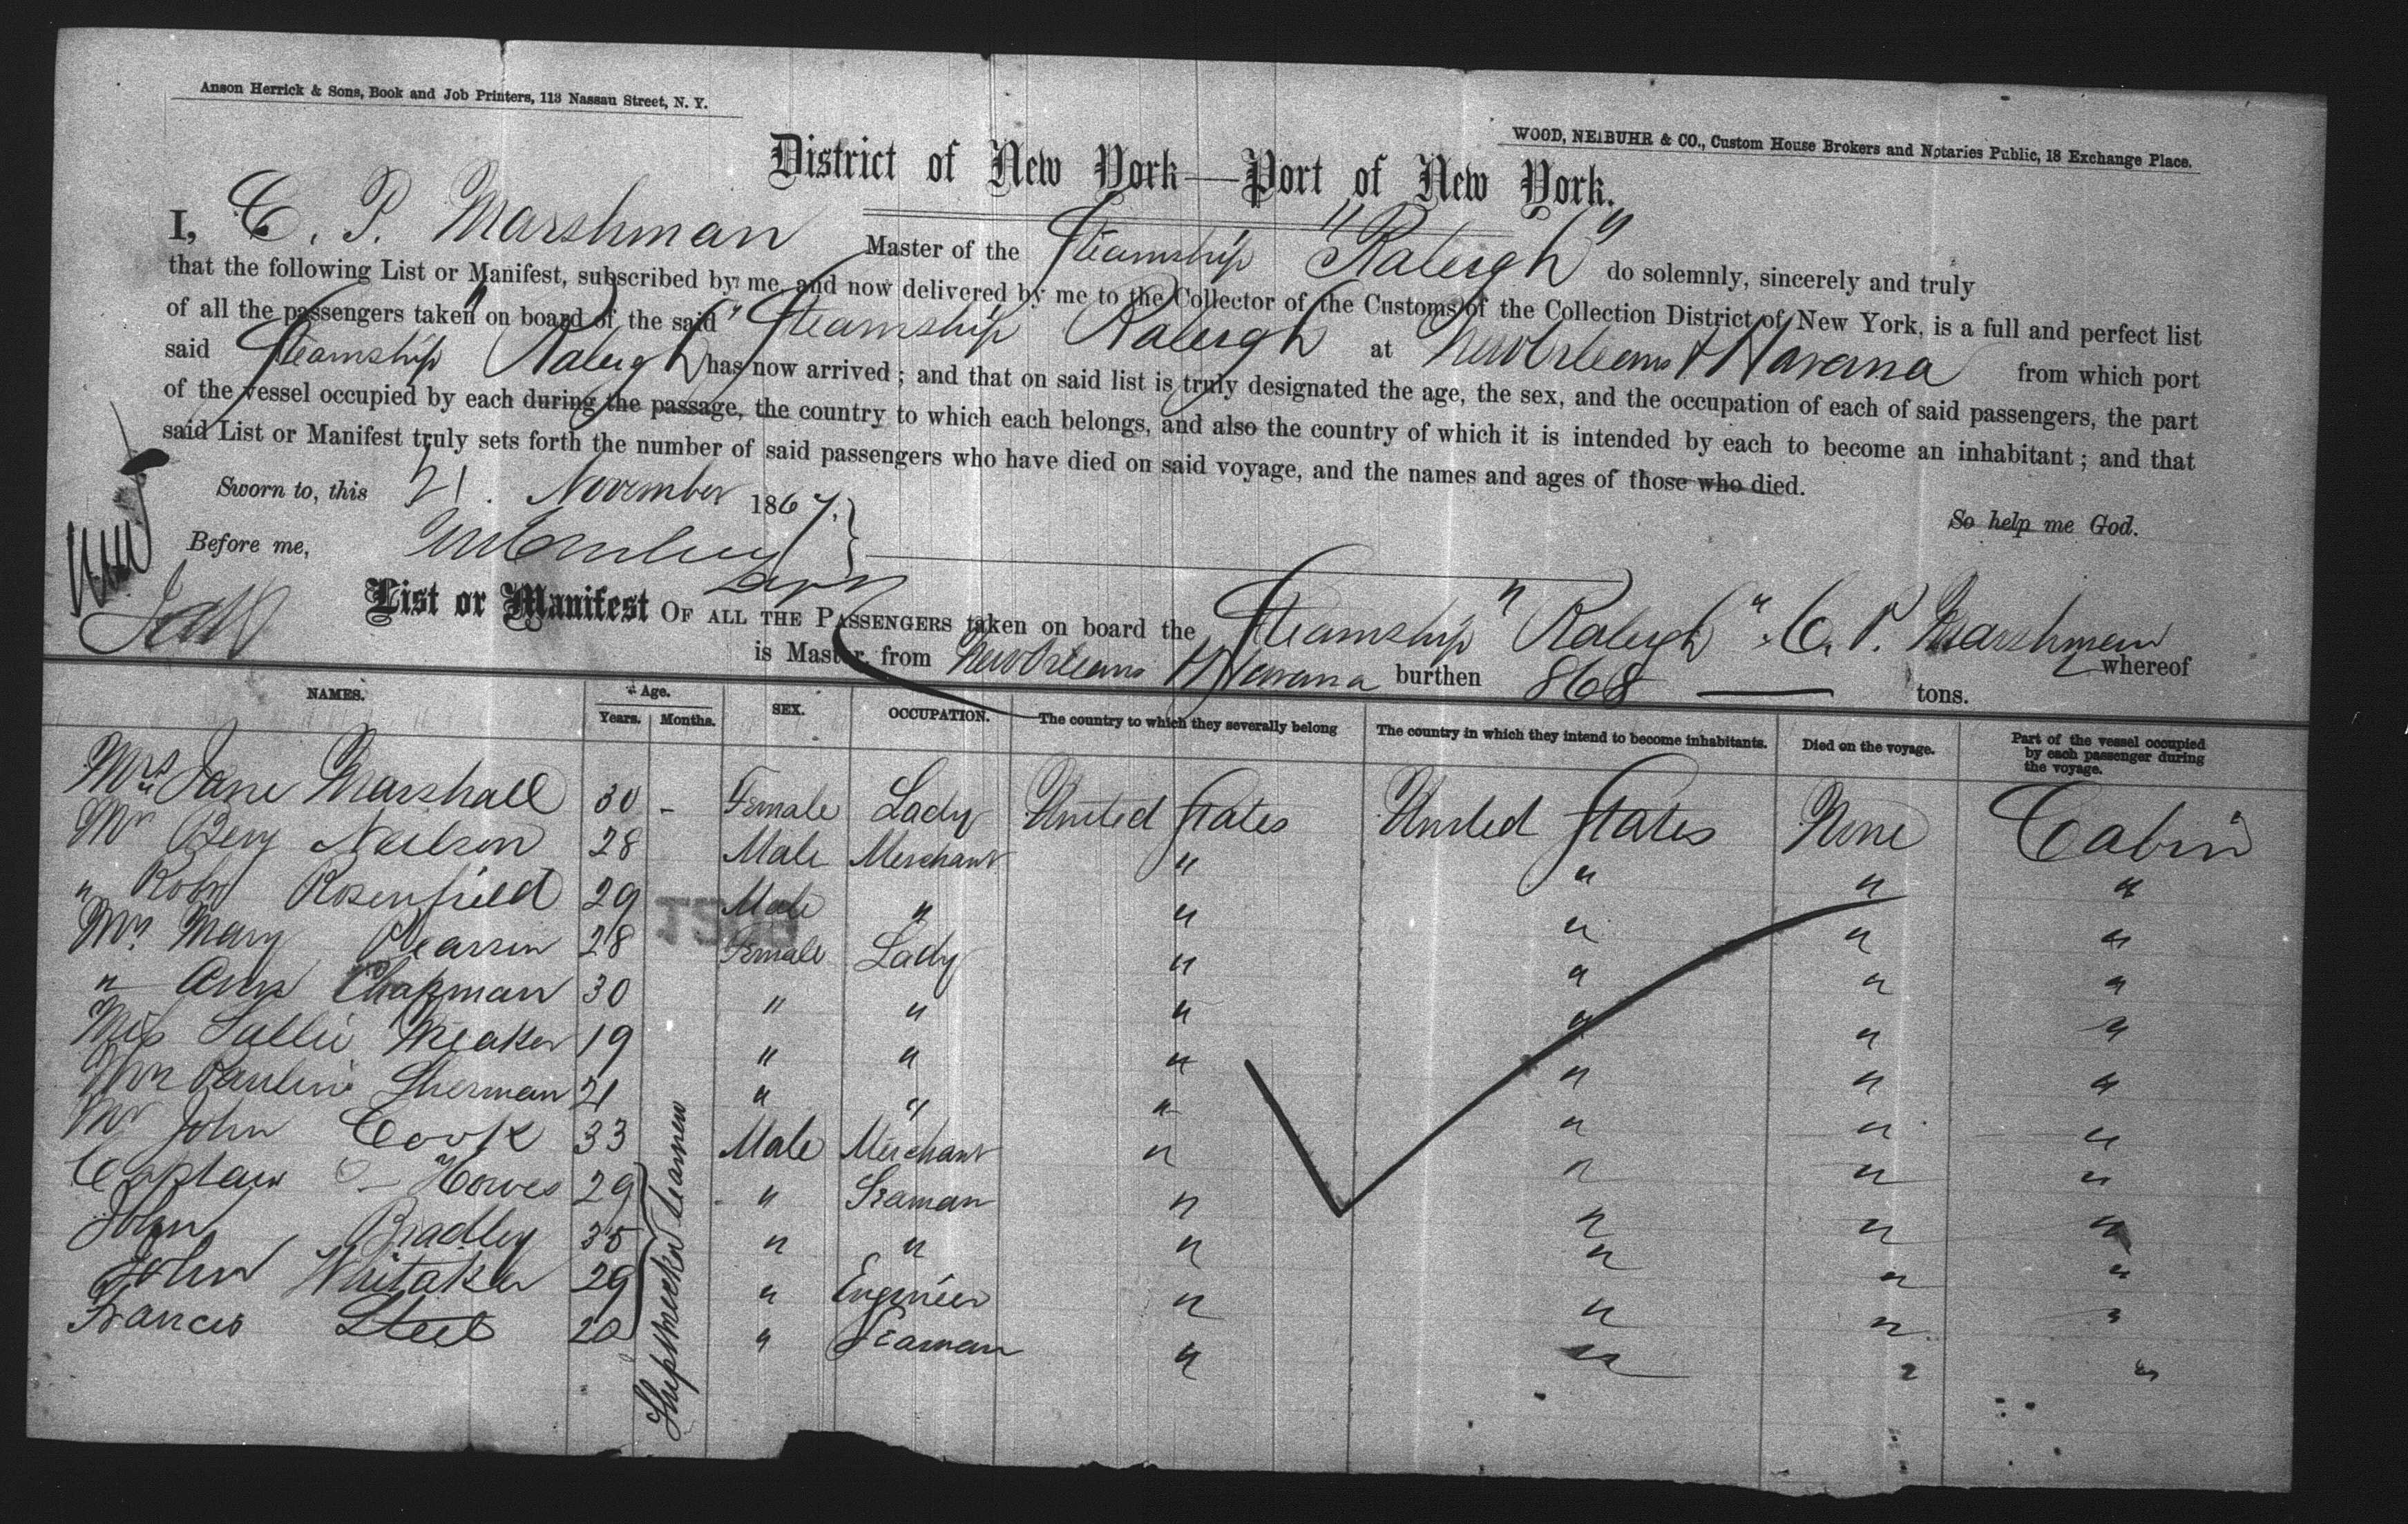 Anson Herrick & Sons, Book and Job Printers, 113 Nassau Street, N. Y.
WOOD, NEIBUHR & CO., Custom House Brokers and Notaries Public, 18 Exchange Place.
District of New York—Port of New York.
I, C. P. Marshman Master of the Steamship "Raleigh" do solemnly, sincerely and truly
that the following List or Manifest, subscribed by me, and now delivered by me to the Collector of the Customs of the Collection District of New York, is a full and perfect list
of all the passengers taken on board of the said "Steamship Raleigh at New Orleans & Havana from which port
said Steamship "Raleigh has now arrived; and that on said list is truly designated the age, the sex, and the occupation of each of said passengers, the part
of the vessel occupied by each during the passage, the country to which each belongs, and also the country of which it is intended by each to become an inhabitant; and that
said List or Manifest truly sets forth the number of said passengers who have died on said voyage, and the names and ages of those who died.
Sworn to, this 21. November 1867.
So help me God.
Before me,
List or Manifest OF ALL THE PASSENGERS taken on board the Steamship "Raleigh" C. P. Marshman whereof
is Master, from New Orleans & Havana burthen 868 tons.
NAMES. Age. Years. Months. SEX. OCCUPATION. The country to which they severally belong The country in which they intend to become inhabitants. Died on the voyage. Part of the vessel occupied by each passenger during the voyage.
Mrs Jane Marshall 30 - Female Lady United States United States None Cabin
Mr Benj Neilson 28 Male Merchant " " " "
" Robt Rosenfield 29 Male " " " " "
Mrs Mary 28 Female Lady " " " "
" Ann Chapman 30 " " " " " "
Miss Sallie Meaker 19 " " " " " "
Pauline Sherman 21 " " " " " "
Mr John Cook 33 Male Merchant " " " "
Captain Howes 29 " Seaman " " " "
John Bradley 35 " " " " " "
John Whitaker 29 " Engineer " " " "
Francis Steel 20 " Seaman " " " "
Shipwrecked Seamen